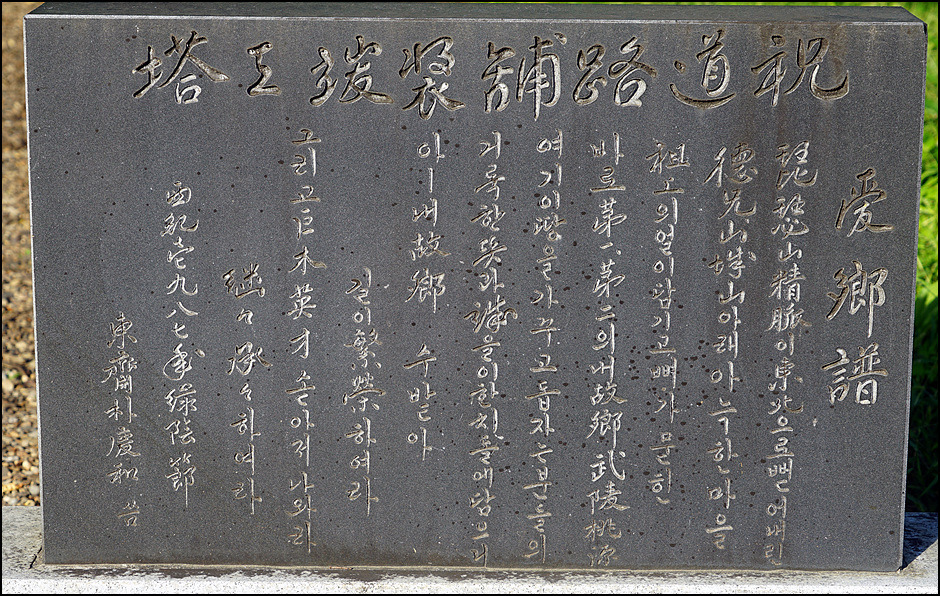 祝道路舖裝竣工塔
愛鄉譜
琵瑟山精脈이東北으로뻗어내린
德兄山城山아래아늑한마을
祖上의얼이담기고뼈가묻힌
바로第一第二의내故鄉武陵桃源
여기이땅을가꾸고돕자는분들의
거룩한뜻과誠을이한칫돌에담으니
아ㅡ내故鄉 수받아
길이繁榮하여라
그리고巨木英才솟아저나와라
継々承々하여라
西紀壱九八七年綠陰節
東齋朴慶和 씀